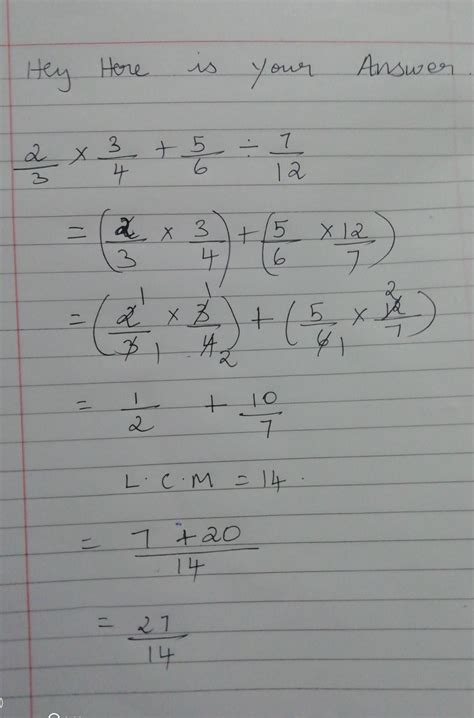 Hey Here is your Answer.
2/3 × 3/4 + 5/6 ÷ 7/12
= (2/3 × 3/4) + (5/6 × 12/7)
= (2̶ 1/3̶ 1 × 3̶ 1/4̶ 2) + (5/6̶ 1 × 1̶2̶ 2/7)
= 1/2 + 10/7
L.C.M = 14.
= 7 + 20/14
= 27/14